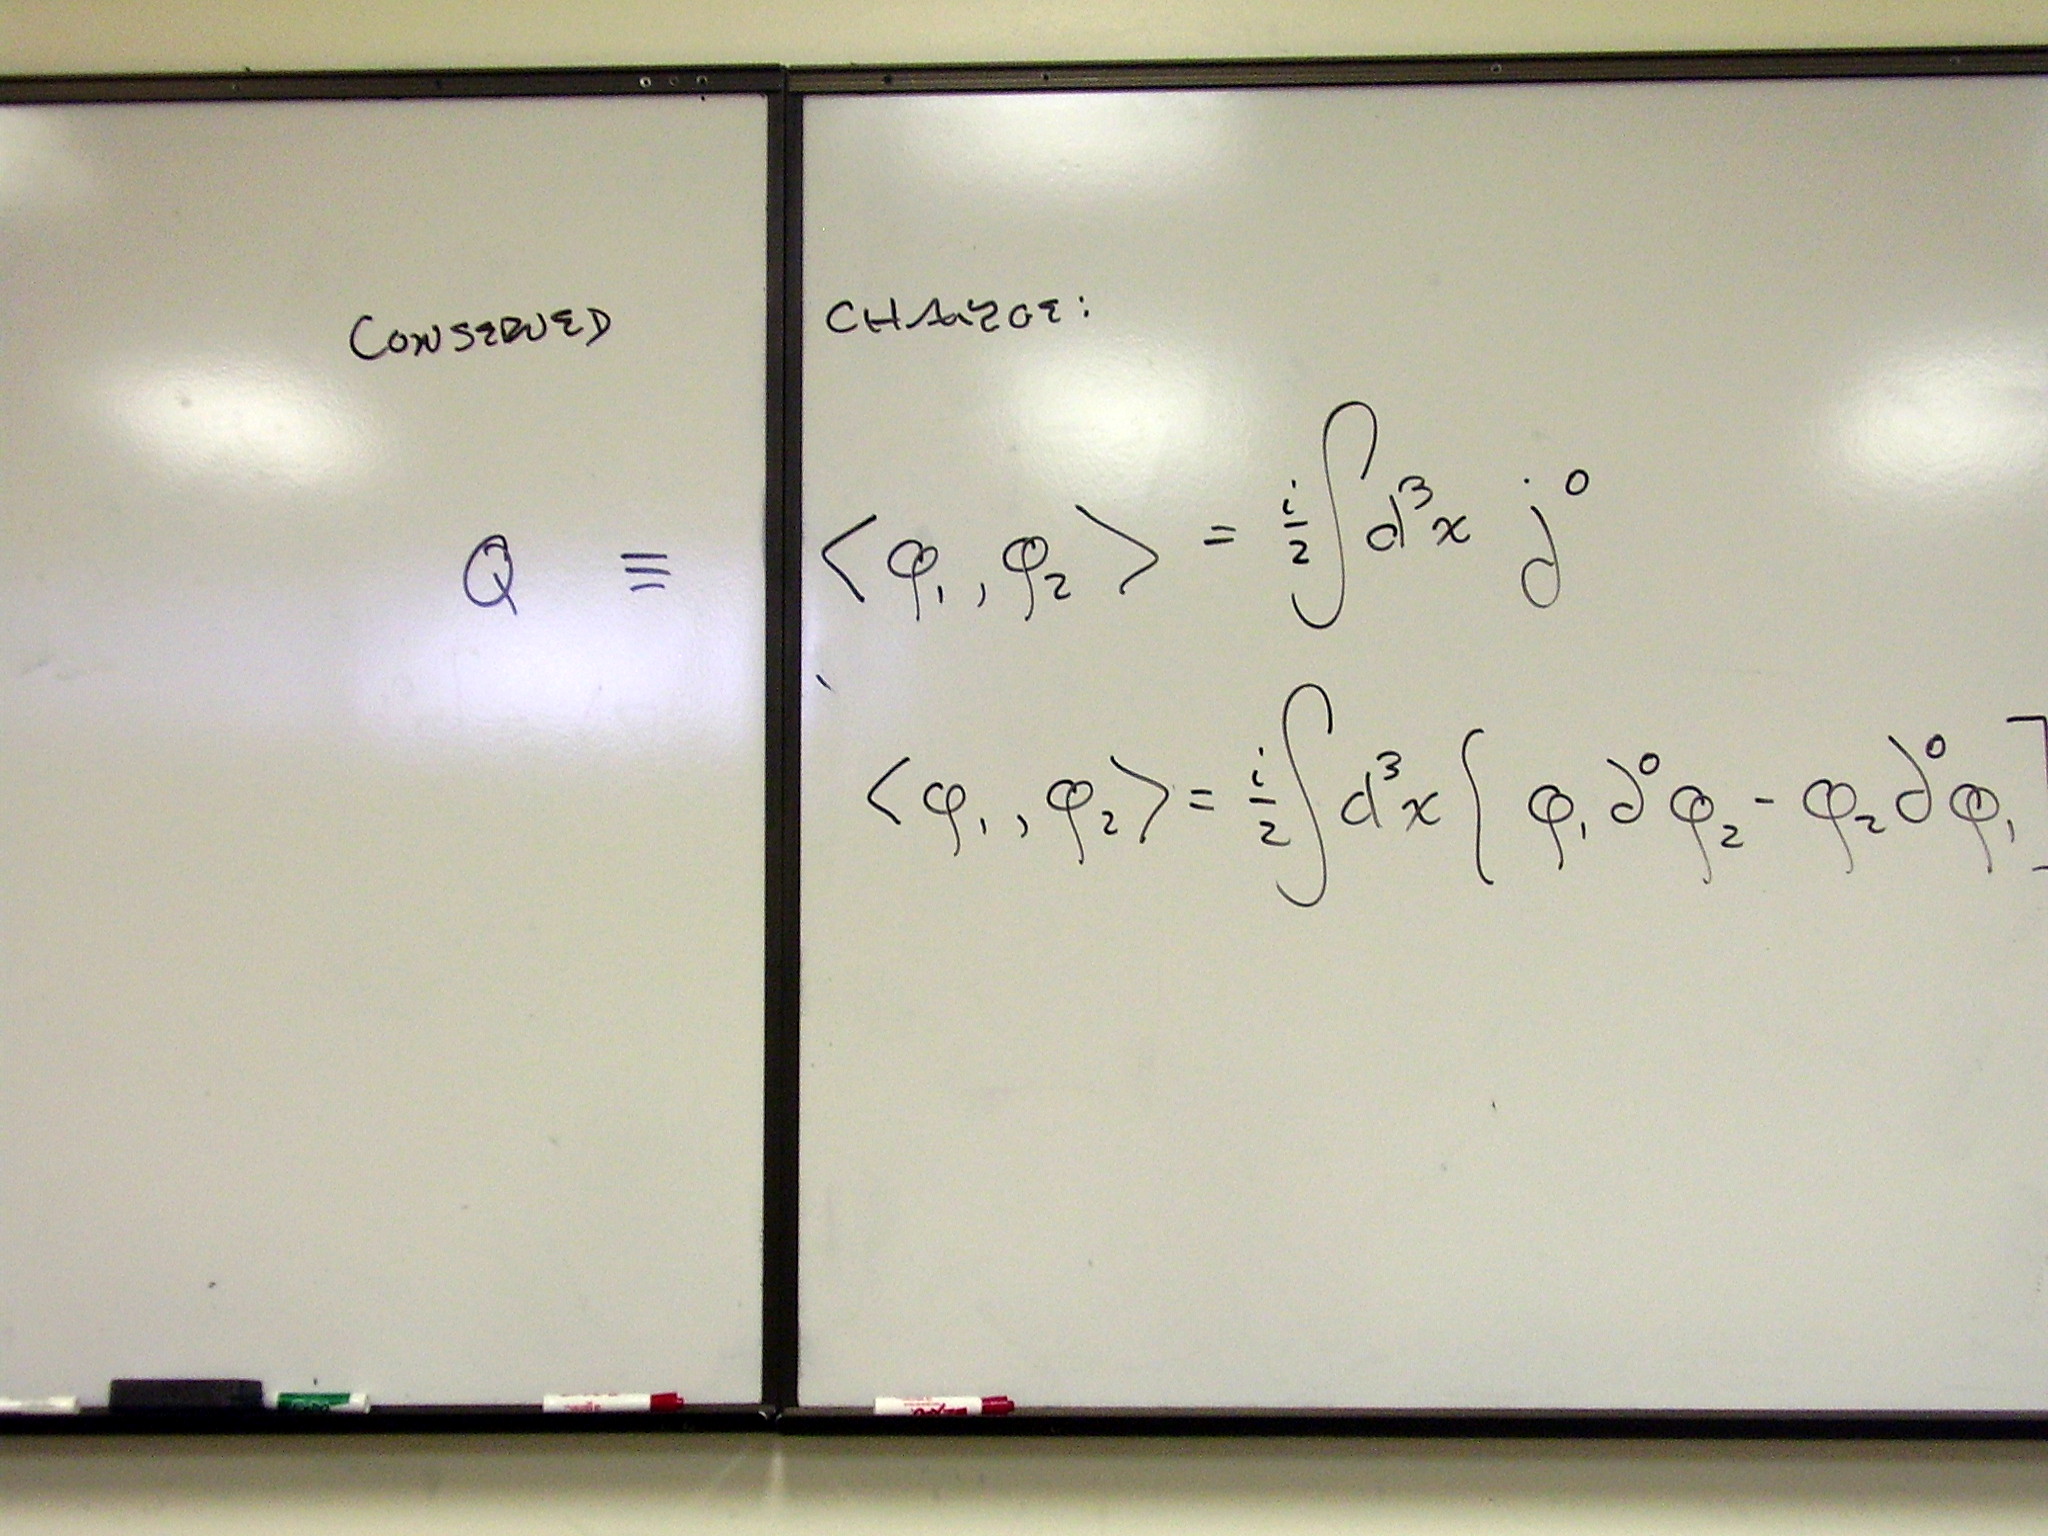 CONSERVED CHARGE:
Q ≡ <φ₁, φ₂> = i/2 ∫d³x j⁰
<φ₁, φ₂> = i/2 ∫d³x { φ₁∂⁰φ₂ - φ₂∂⁰φ₁ ]